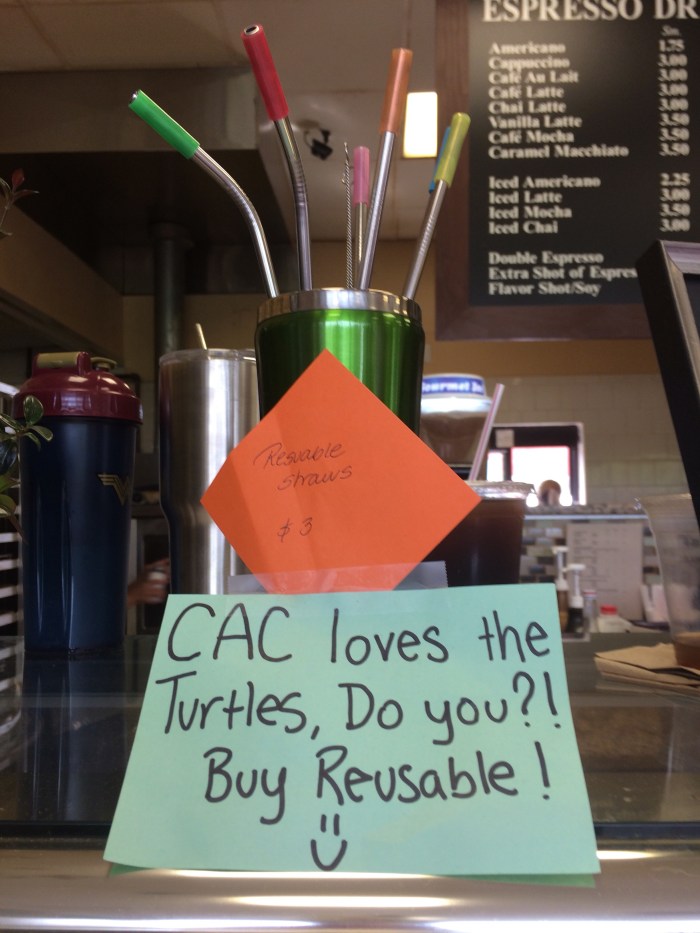 ESPRESSO DR
Sm.
Americano 1.75
Cappuccino 3.00
Café Au Lait 3.00
Café Latte 3.00
Chai Latte 3.00
Vanilla Latte 3.50
Café Mocha 3.50
Caramel Macchiato 3.50
Iced Americano 2.25
Iced Latte 3.00
Iced Mocha 3.50
Iced Chai 3.00
Double Espresso
Extra Shot of Espres
Flavor Shot/Soy
Reusable
straws
$3
CAC loves the
Turtles, Do you?!
Buy Reusable!